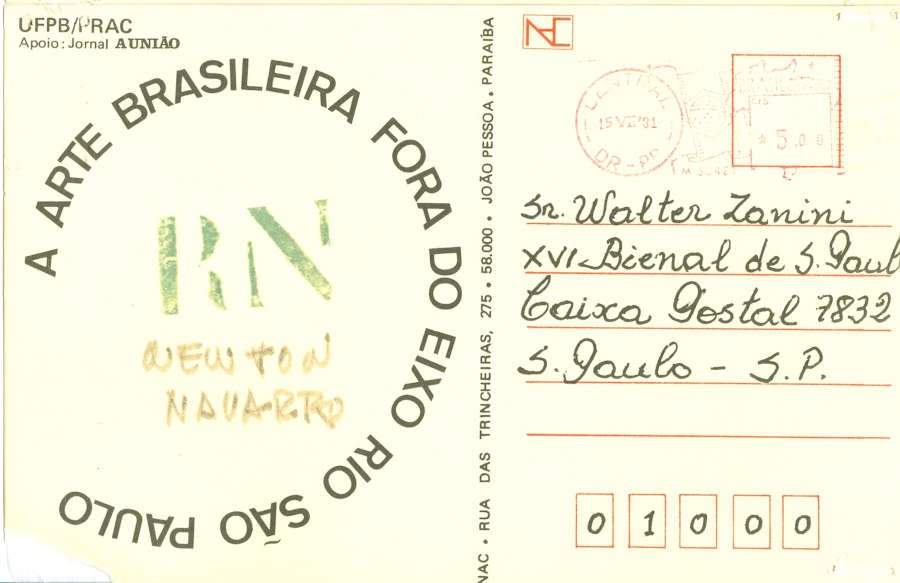 UFPB/PRAC
Apoio: Jornal A UNIÃO
A ARTE BRASILEIRA FORA DO EIXO RIO SÃO PAULO
RN
NEWTON
NAVARRO
NAC • RUA DAS TRINCHEIRAS, 275 • 58.000 • JOÃO PESSOA • PARAÍBA
NAC
CENTRAL
15 VII 81
DR-PB
* 5.00
Sr. Walter Zanini
XVI-Bienal de S. Paul
Caixa Postal 7832
S. Paulo - S.P.
0 1 0 0 0